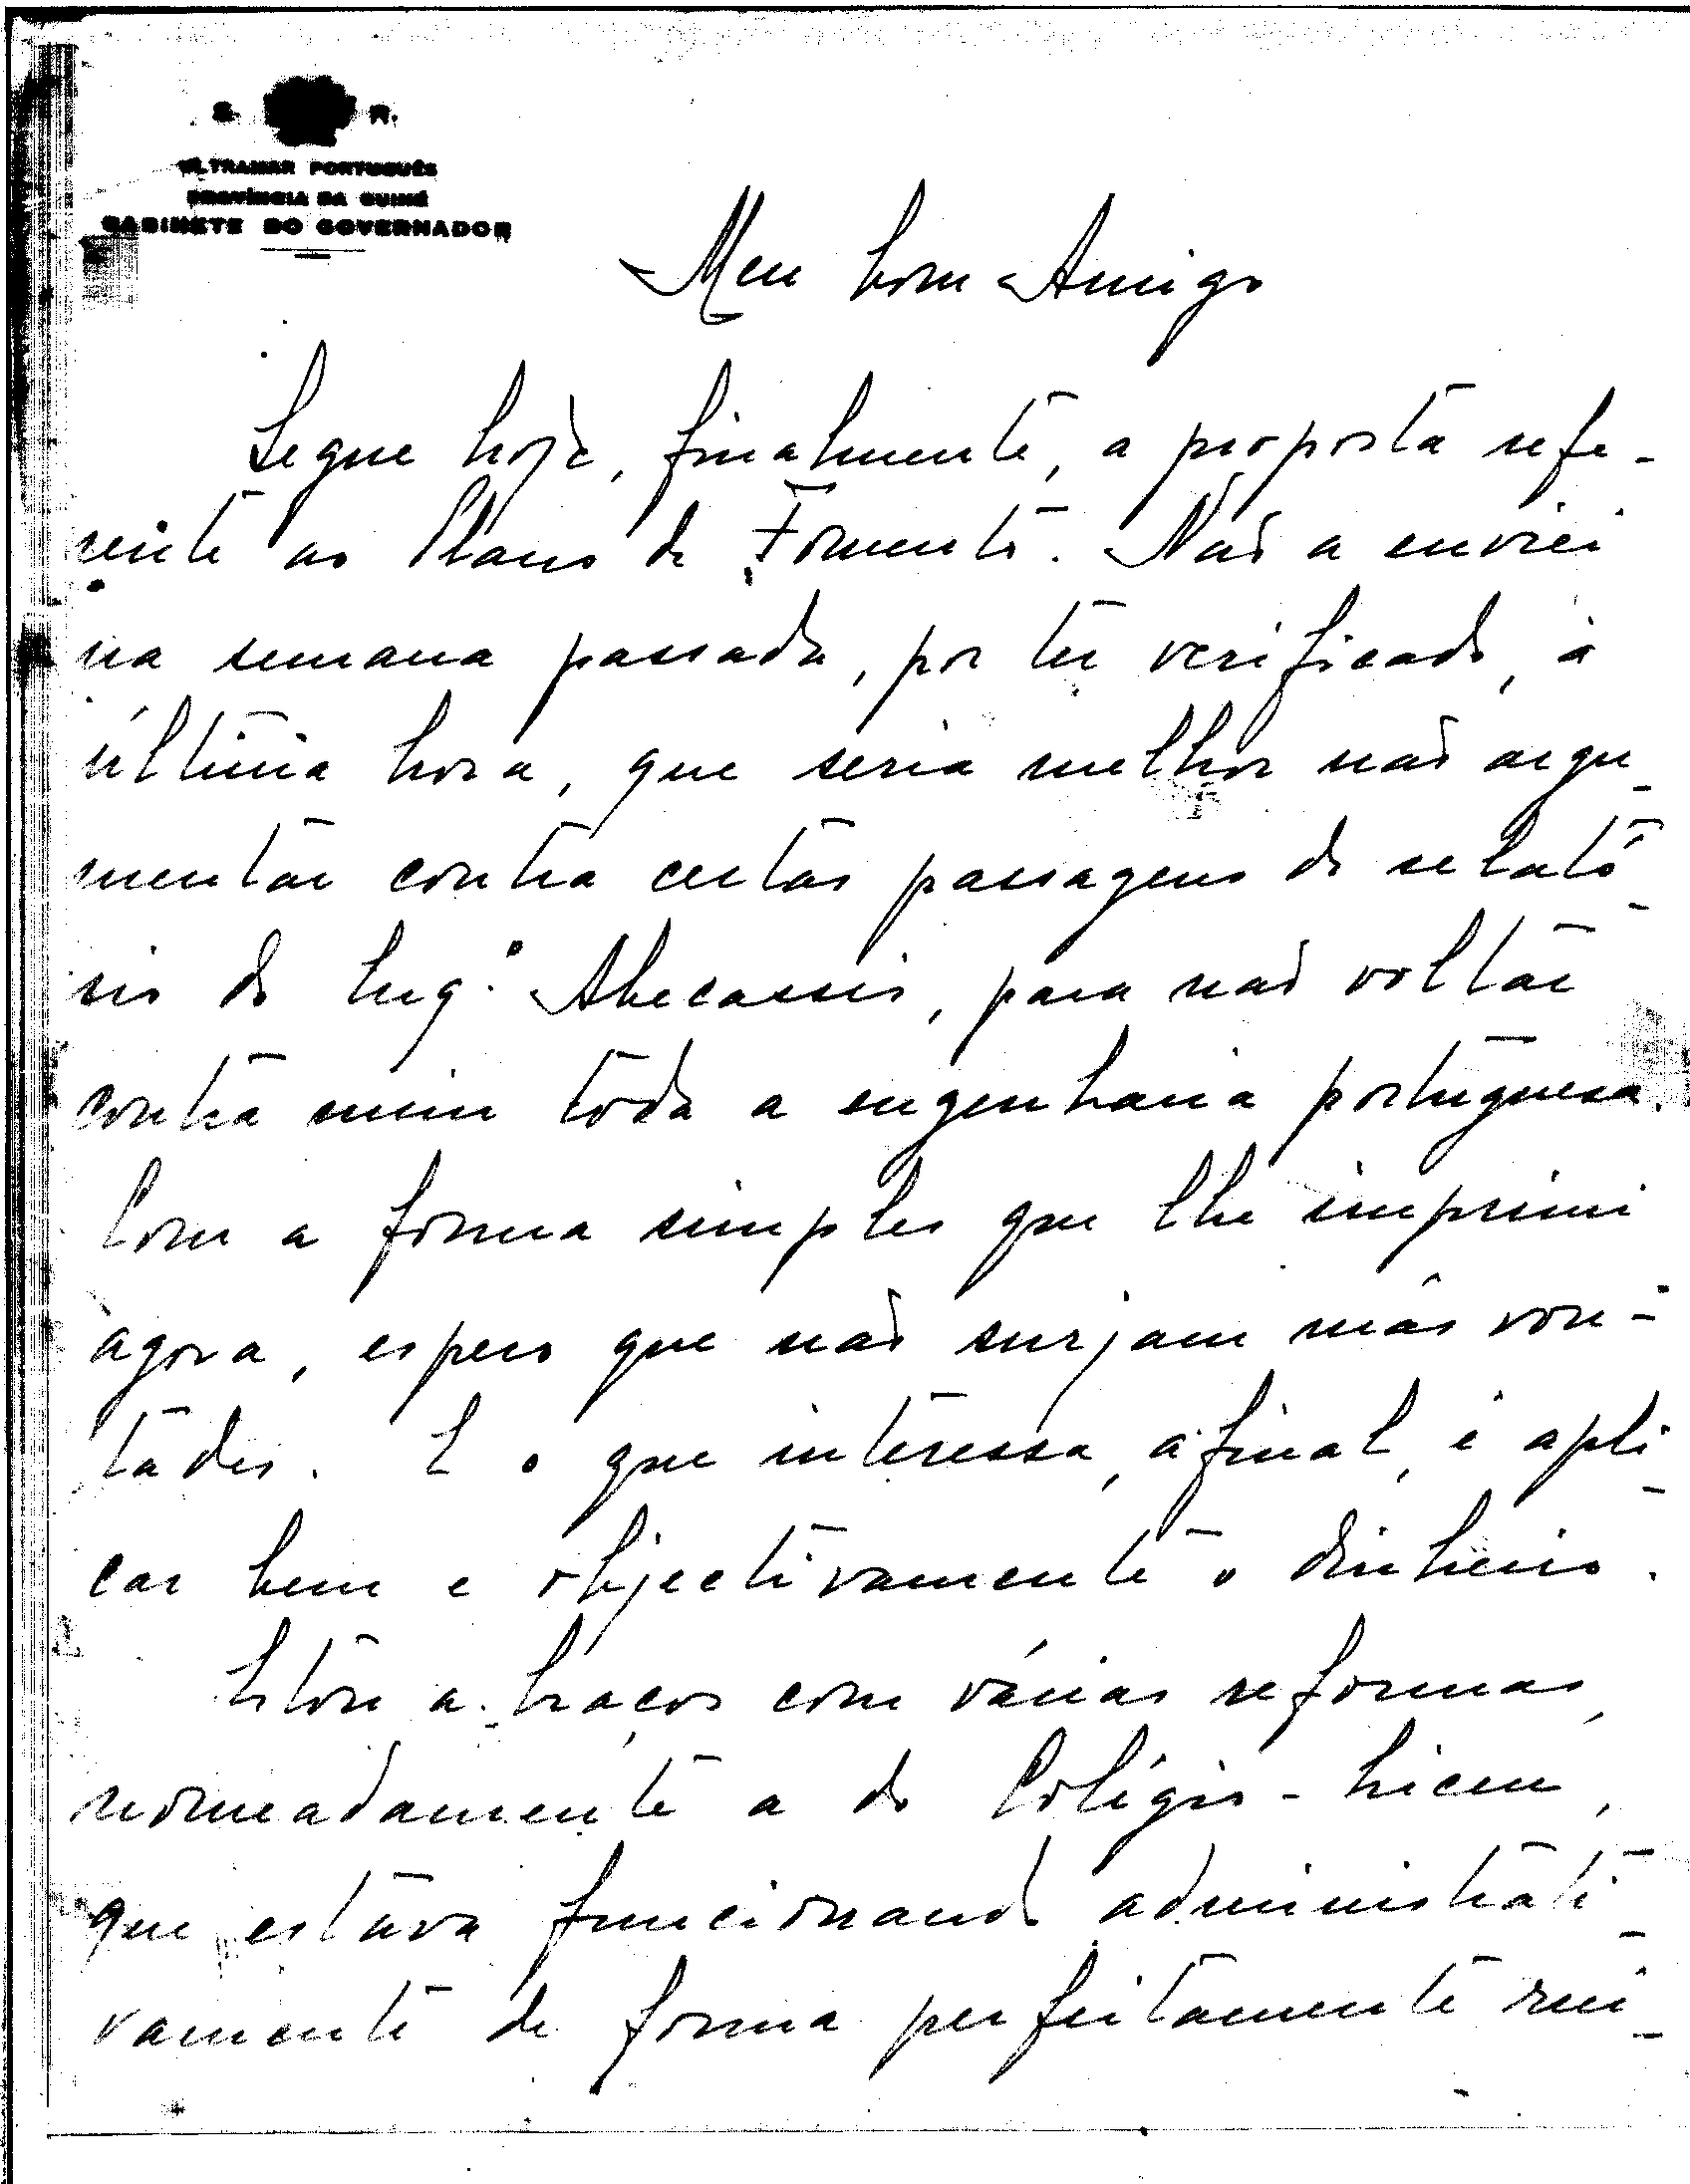 S. R.
ULTRAMAR PORTUGUÊS
PROVÍNCIA DA GUINÉ
GABINETE DO GOVERNADOR
Meu bom Amigo
Segue hoje, finalmente, a proposta refe-
rente ao Plano de Fomento. Não a enviei
na semana passada, por ter verificado, à
última hora, que seria melhor não argu-
mentar contra certas passagens do relató-
rio do Eng.º Abecassis, para não voltar
contra mim toda a engenharia portuguesa.
Com a forma simples que lhe imprimi
agora, espero que não surjam más von-
tades. E o que interessa, afinal, é apli-
car bem e objectivamente o dinheiro.
Estou a braços com várias reformas,
nomeadamente a do Colégio-Liceu,
que estava funcionando administrati-
vamente de forma perfeitamente rui-